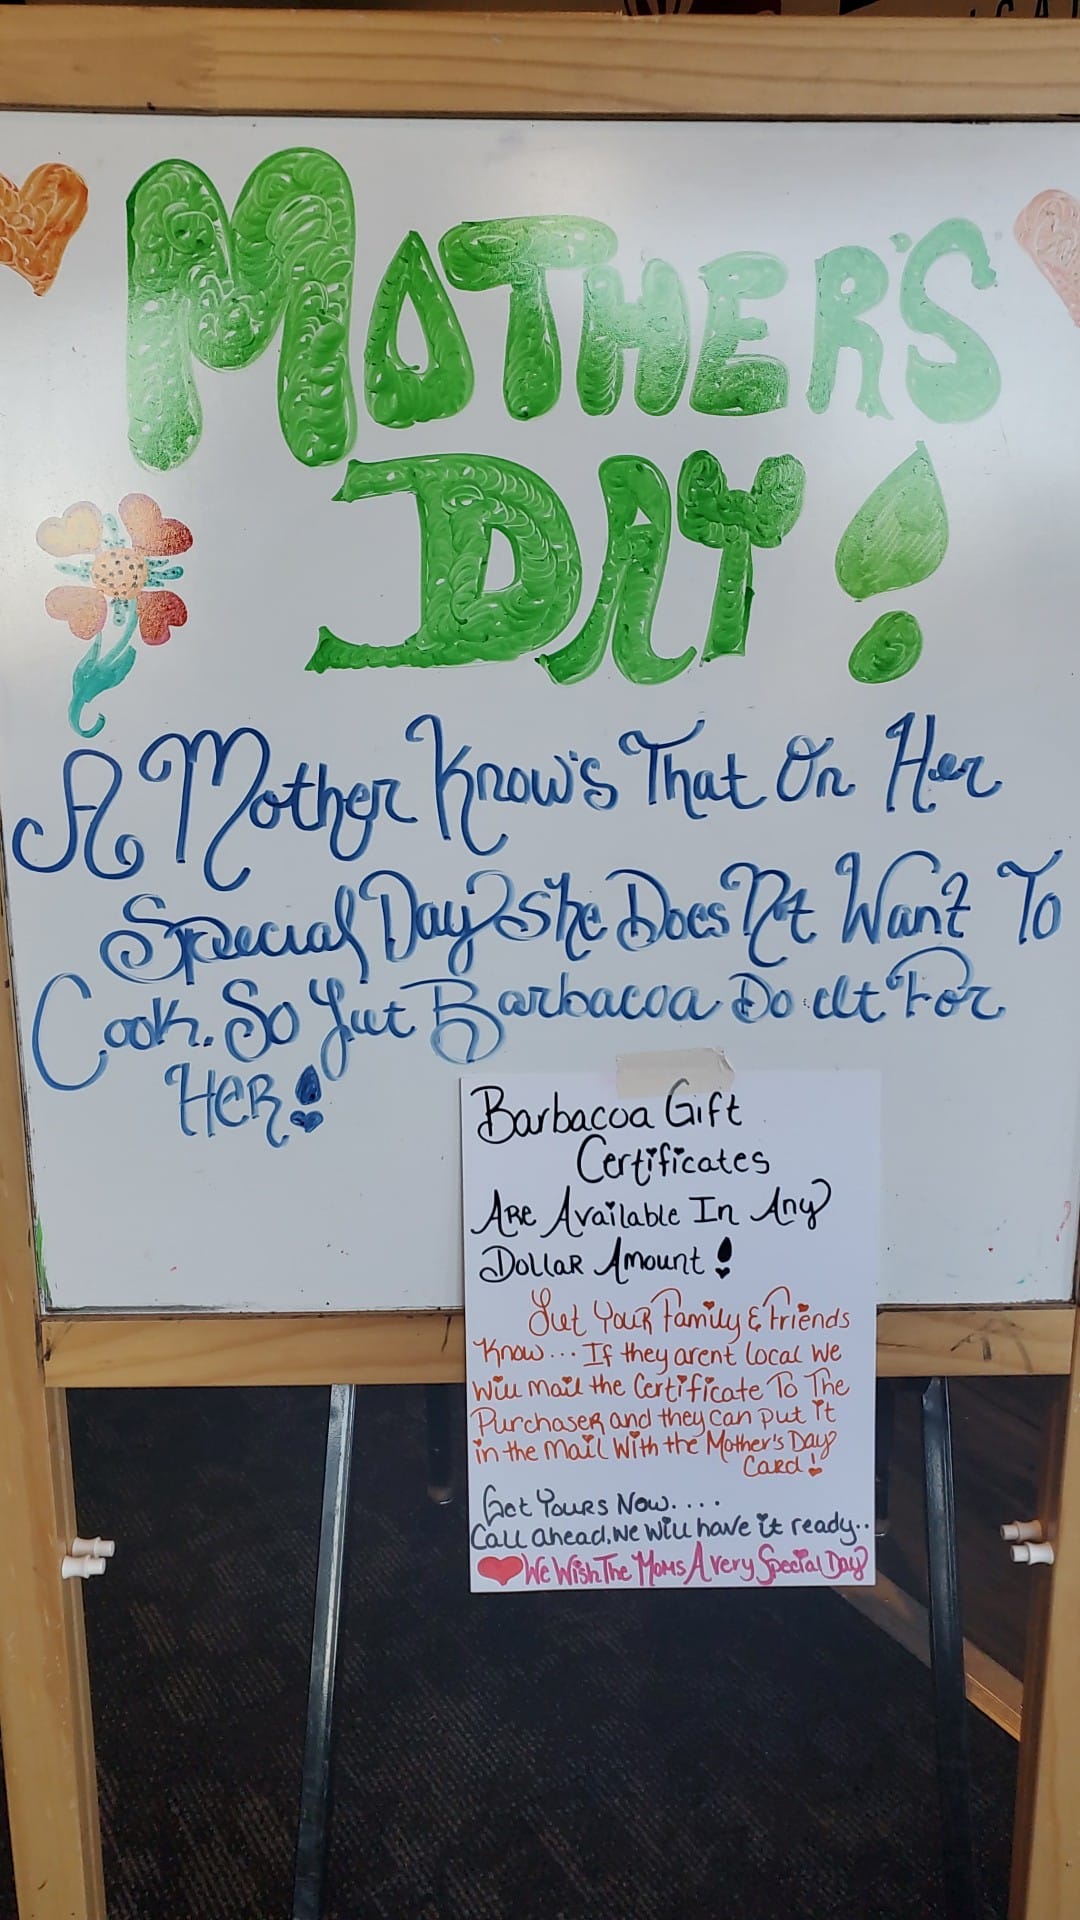 MOTHER'S
DAY!
A Mother Know's That On Her
Special Day She Does Not Want To
Cook. So Let Barbacoa Do It For
HER!
Barbacoa Gift
Certificates
ARE Available In Any
Dollar Amount!
Let Your Family & Friends
Know... If they arent local we
will mail the Certificate To The
Purchaser and they can put it
in the mail with the Mother's Day
Card!
Get Yours Now....
Call ahead, we will have it ready..
We Wish The Moms A very Special Day